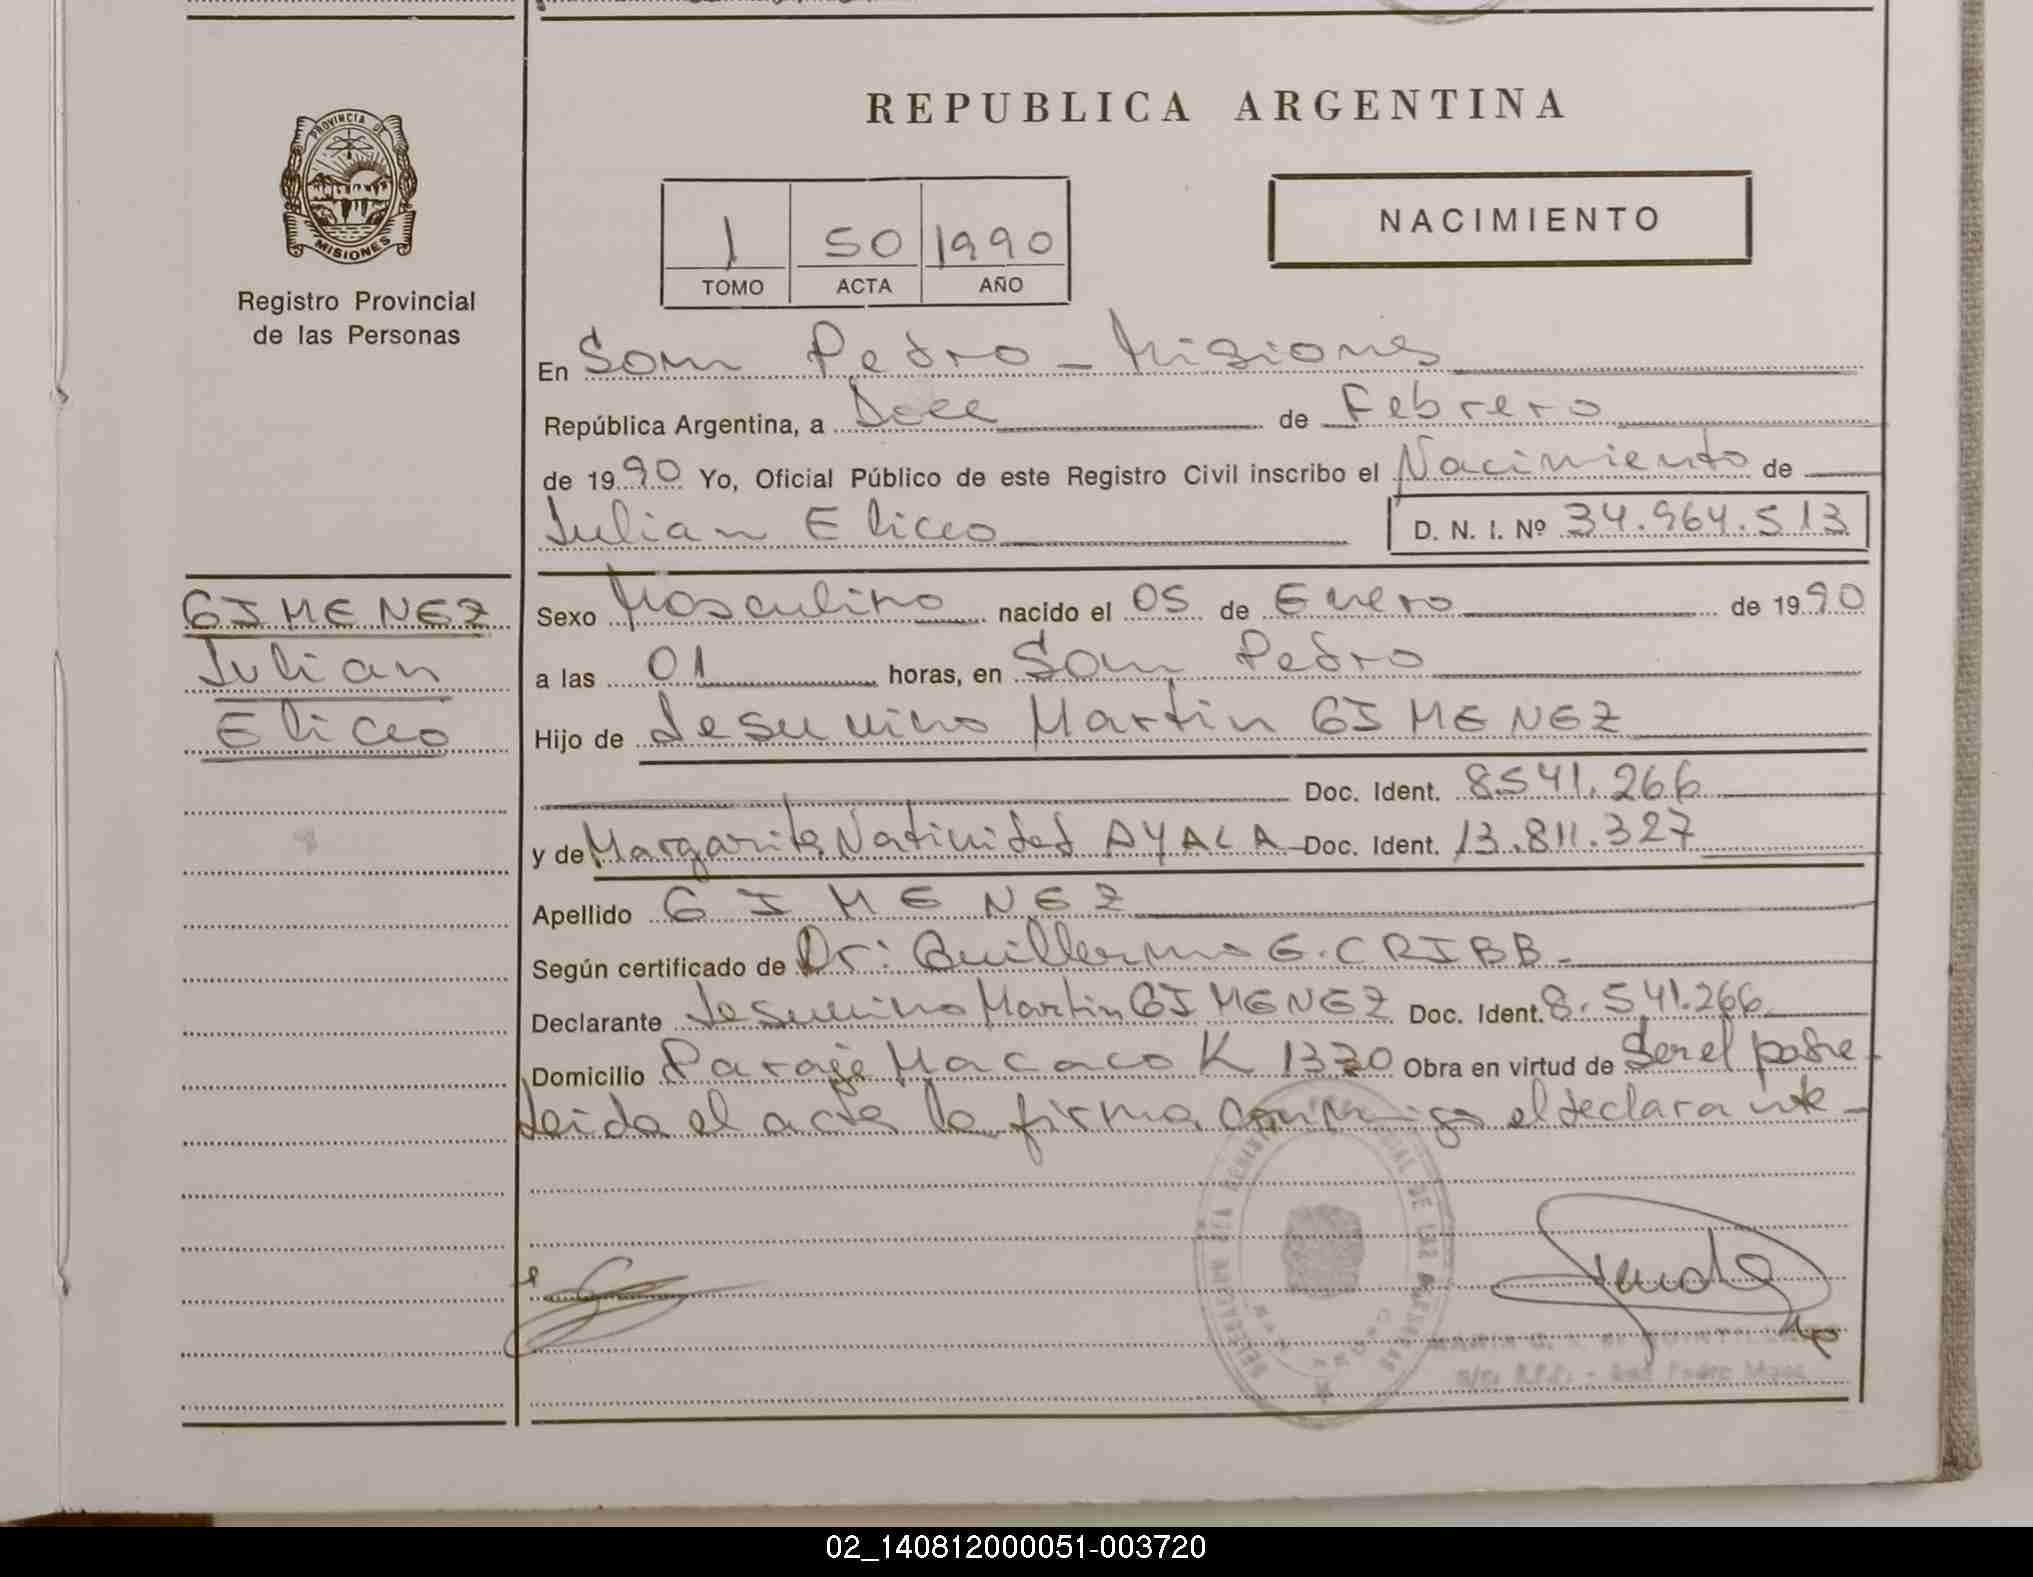 REPUBLICA ARGENTINA
PROVINCIA DE
MISIONES
Registro Provincial
de las Personas
1 50 1990
TOMO ACTA AÑO
NACIMIENTO
En San Pedro - Misiones
República Argentina, a Doce de Febrero
de 1990 Yo, Oficial Público de este Registro Civil inscribo el Nacimiento de
Julian Eliceo D. N. I. Nº 34.964.513
GIMENEZ
Julian
Eliceo
Sexo Masculino nacido el 05 de Enero de 1990
a las 01 horas, en San Pedro
Hijo de Jesuvino Martin GIMENEZ
Doc. Ident. 8.541.266
y de Margarita Natividad AYALA Doc. Ident. 13.811.327
Apellido GIMENEZ
Según certificado de Dr: Guillermo G. CRIBB.
Declarante Jesuvino Martin GIMENEZ Doc. Ident. 8.541.266
Domicilio Paraje Macaco K 1320 Obra en virtud de Ser el padre
leida el acta la firma conmigo el declarante
02_140812000051-003720